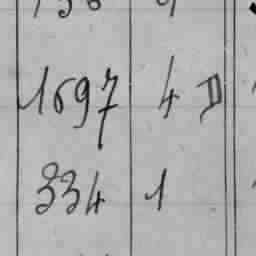 1697 4 D
334 1